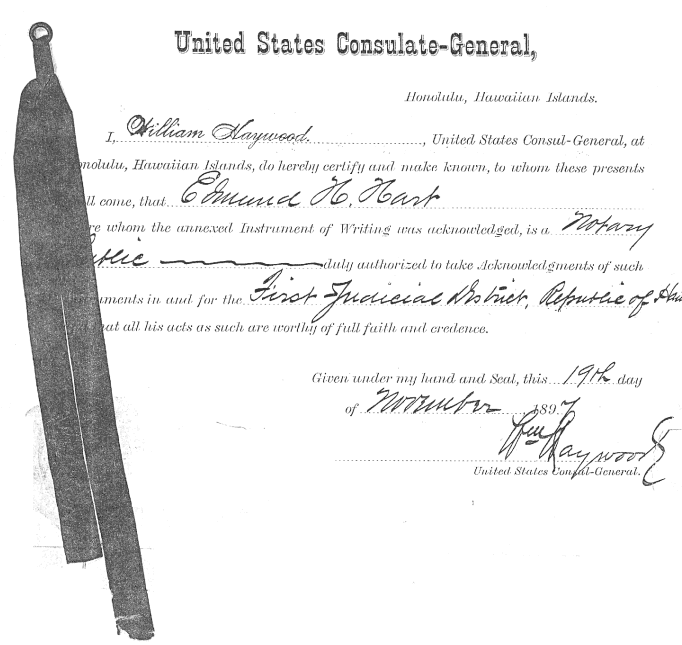 United States Consulate-General,
Honolulu, Hawaiian Islands.
I, William Haywood. , United States Consul-General, at
onolulu, Hawaiian Islands, do hereby certify and make known, to whom these presents
ll come, that Edmund H. Hart
re whom the annexed Instrument of Writing was acknowledged, is a Notary
ublic duly authorized to take Acknowledgments of such
ruments in and for the First Judicial District, Republic of Haw
at all his acts as such are worthy of full faith and credence.
Given under my hand and Seal, this 19th day
of November 1897
Wm Haywood
United States Consul-General.